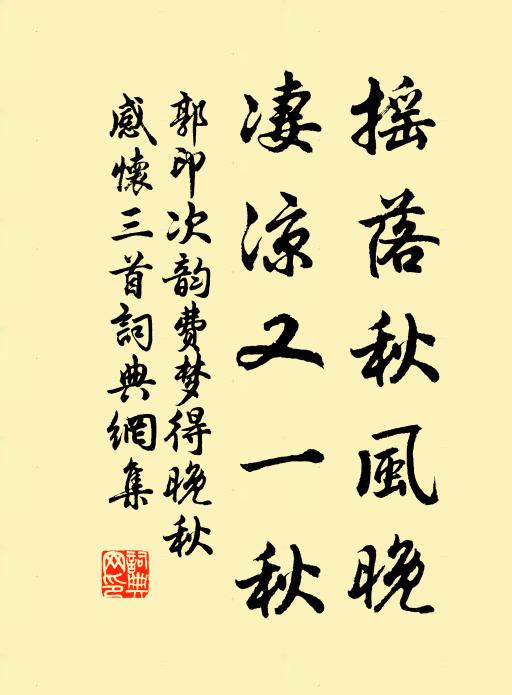 摇落秋風晚
凄凉又一秋
郭印次韵费梦得晚秋
感懷三首詞典網集
詞典網印